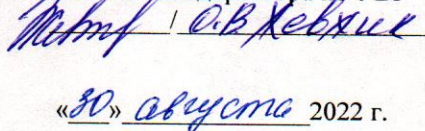 / О.В Хевхик
«30» августа 2022 г.